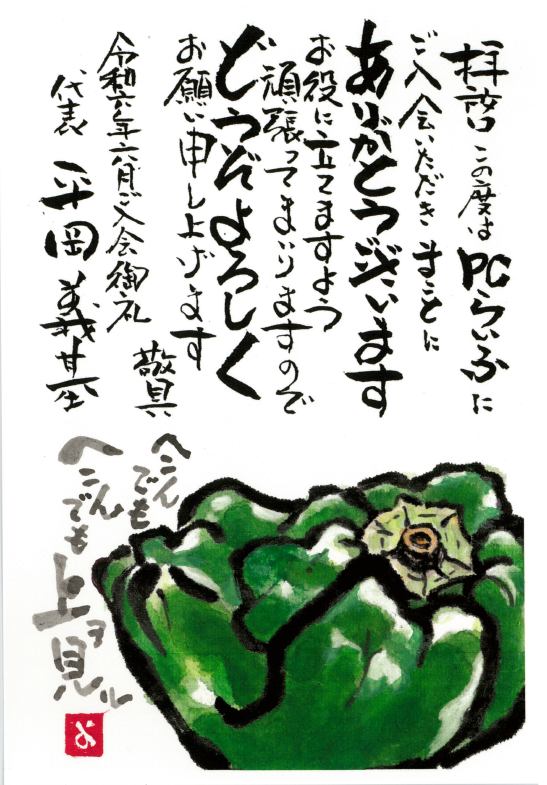 拝啓 この度は PCらいふに
ご入会いただき まことに
ありがとうございます
お役に立てますよう
頑張ってまいりますので
どうぞよろしく
お願い申し上げます
敬具
令和六年六月ご入会御礼
代表 平岡義基
へこんでも
へこんでも
上ヲ見ル
よ